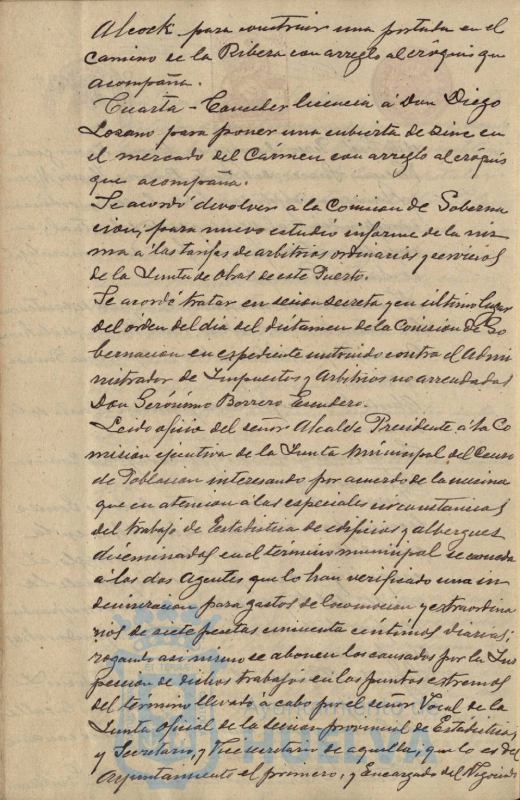 Alcock para construir una portada en el
Camino de la Ribera con arreglo al cróquis que
acompaña.
Cuarta - Conceder licencia á Don Diego
Lozano para poner una cubierta de zinc en
el mercado del Cármen con arreglo al cróquis
que acompaña.
Se acordó devolver á la Comision de Goberna
cion, para nuevo estudio informe de la mis
ma á las tarifas de arbitrios ordinarios y servicios
de la Junta de Obras de este Puerto.
Se acordó tratar en sesion secreta y en último lugar
del órden del dia del dictámen de la Comision de Go
bernacion en expediente instruido contra el Admi
nistrador de Impuestos y Arbitrios no arrendados
Don Gerónimo Borrero Escudero.
Leido oficio del señor Alcalde Presidente á la Co
mision ejecutiva de la Junta municipal del Censo
de Poblacion interesando por acuerdo de la misma
que en atencion á las especiales circunstancias
del trabajo de Estadística de edificios y albergues
diseminados en el término municipal se conceda
á los dos Agentes que lo han verificado una in
demnizacion para gastos de locomocion y extraordina
rios de siete pesetas cincuenta céntimos diarias;
rogando asi mismo se abonen los causados por la Ins
peccion de dichos trabajos en los puntos extremos
del término llevado á cabo por el señor Vocal de la
Junta oficial de la Seccion provincial de Estadística,
y Secretario, y Vice secretario de aquella, que lo es del
Ayuntamiento el primero, y Encargado del Negociado
HUELVA